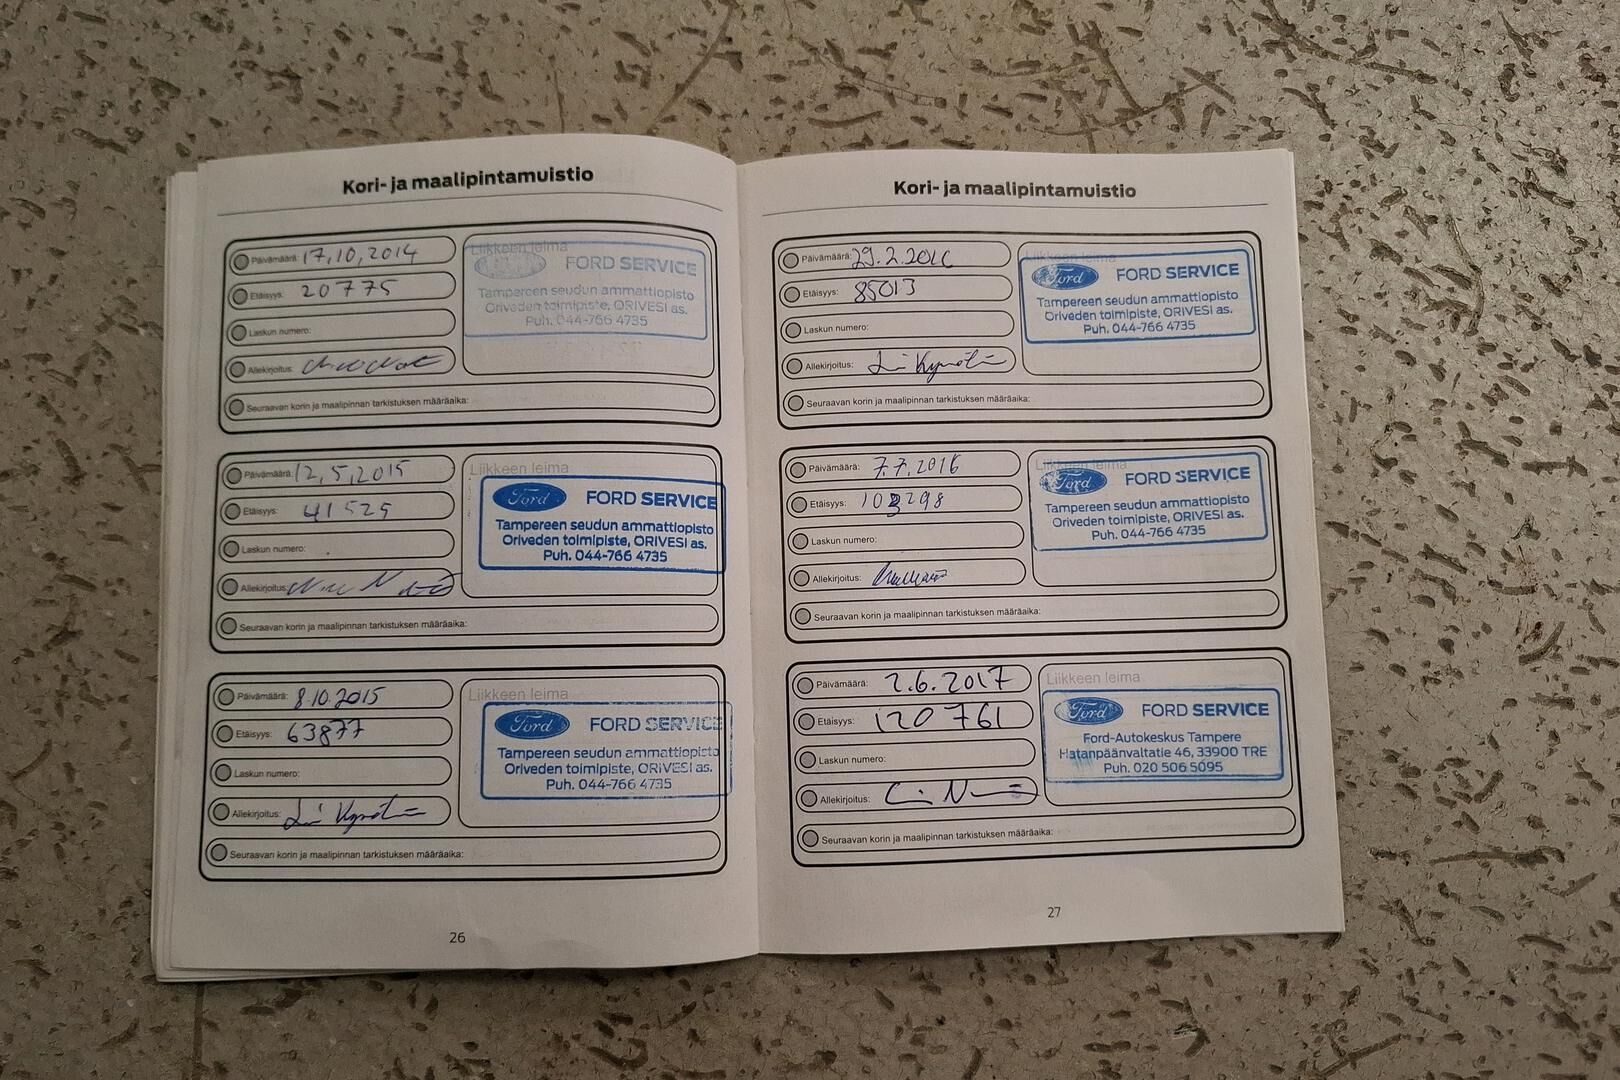 Kori- ja maalipintamuistio
Päivämäärä: 17,10,2014
Etäisyys: 20775
Laskun numero:
Allekirjoitus:
Liikkeen leima
FORD SERVICE
Tampereen seudun ammattiopisto
Oriveden toimipiste, ORIVESI as.
Puh. 044-766 4735
Seuraavan korin ja maalipinnan tarkistuksen määräaika:
Päivämäärä: 12,5,2015
Etäisyys: 41525
Laskun numero:
Allekirjoitus:
Liikkeen leima
Ford FORD SERVICE
Tampereen seudun ammattiopisto
Oriveden toimipiste, ORIVESI as.
Puh. 044-766 4735
Seuraavan korin ja maalipinnan tarkistuksen määräaika:
Päivämäärä: 8.10.2015
Etäisyys: 63877
Laskun numero:
Allekirjoitus:
Liikkeen leima
Ford FORD SERVICE
Tampereen seudun ammattiopisto
Oriveden toimipiste, ORIVESI as.
Puh. 044-766 4735
Seuraavan korin ja maalipinnan tarkistuksen määräaika:
26
Kori- ja maalipintamuistio
Päivämäärä: 29.2.2016
Etäisyys: 85013
Laskun numero:
Allekirjoitus:
Liikkeen leima
Ford FORD SERVICE
Tampereen seudun ammattiopisto
Oriveden toimipiste, ORIVESI as.
Puh. 044-766 4735
Seuraavan korin ja maalipinnan tarkistuksen määräaika:
Päivämäärä: 7.7.2016
Etäisyys: 103298
Laskun numero:
Allekirjoitus:
Liikkeen leima
Ford FORD SERVICE
Tampereen seudun ammattiopisto
Oriveden toimipiste, ORIVESI as.
Puh. 044-766 4735
Seuraavan korin ja maalipinnan tarkistuksen määräaika:
Päivämäärä: 2.6.2017
Etäisyys: 120761
Laskun numero:
Allekirjoitus:
Liikkeen leima
Ford FORD SERVICE
Ford-Autokeskus Tampere
Hatanpäänvaltatie 46, 33900 TRE
Puh. 020 506 5095
Seuraavan korin ja maalipinnan tarkistuksen määräaika:
27